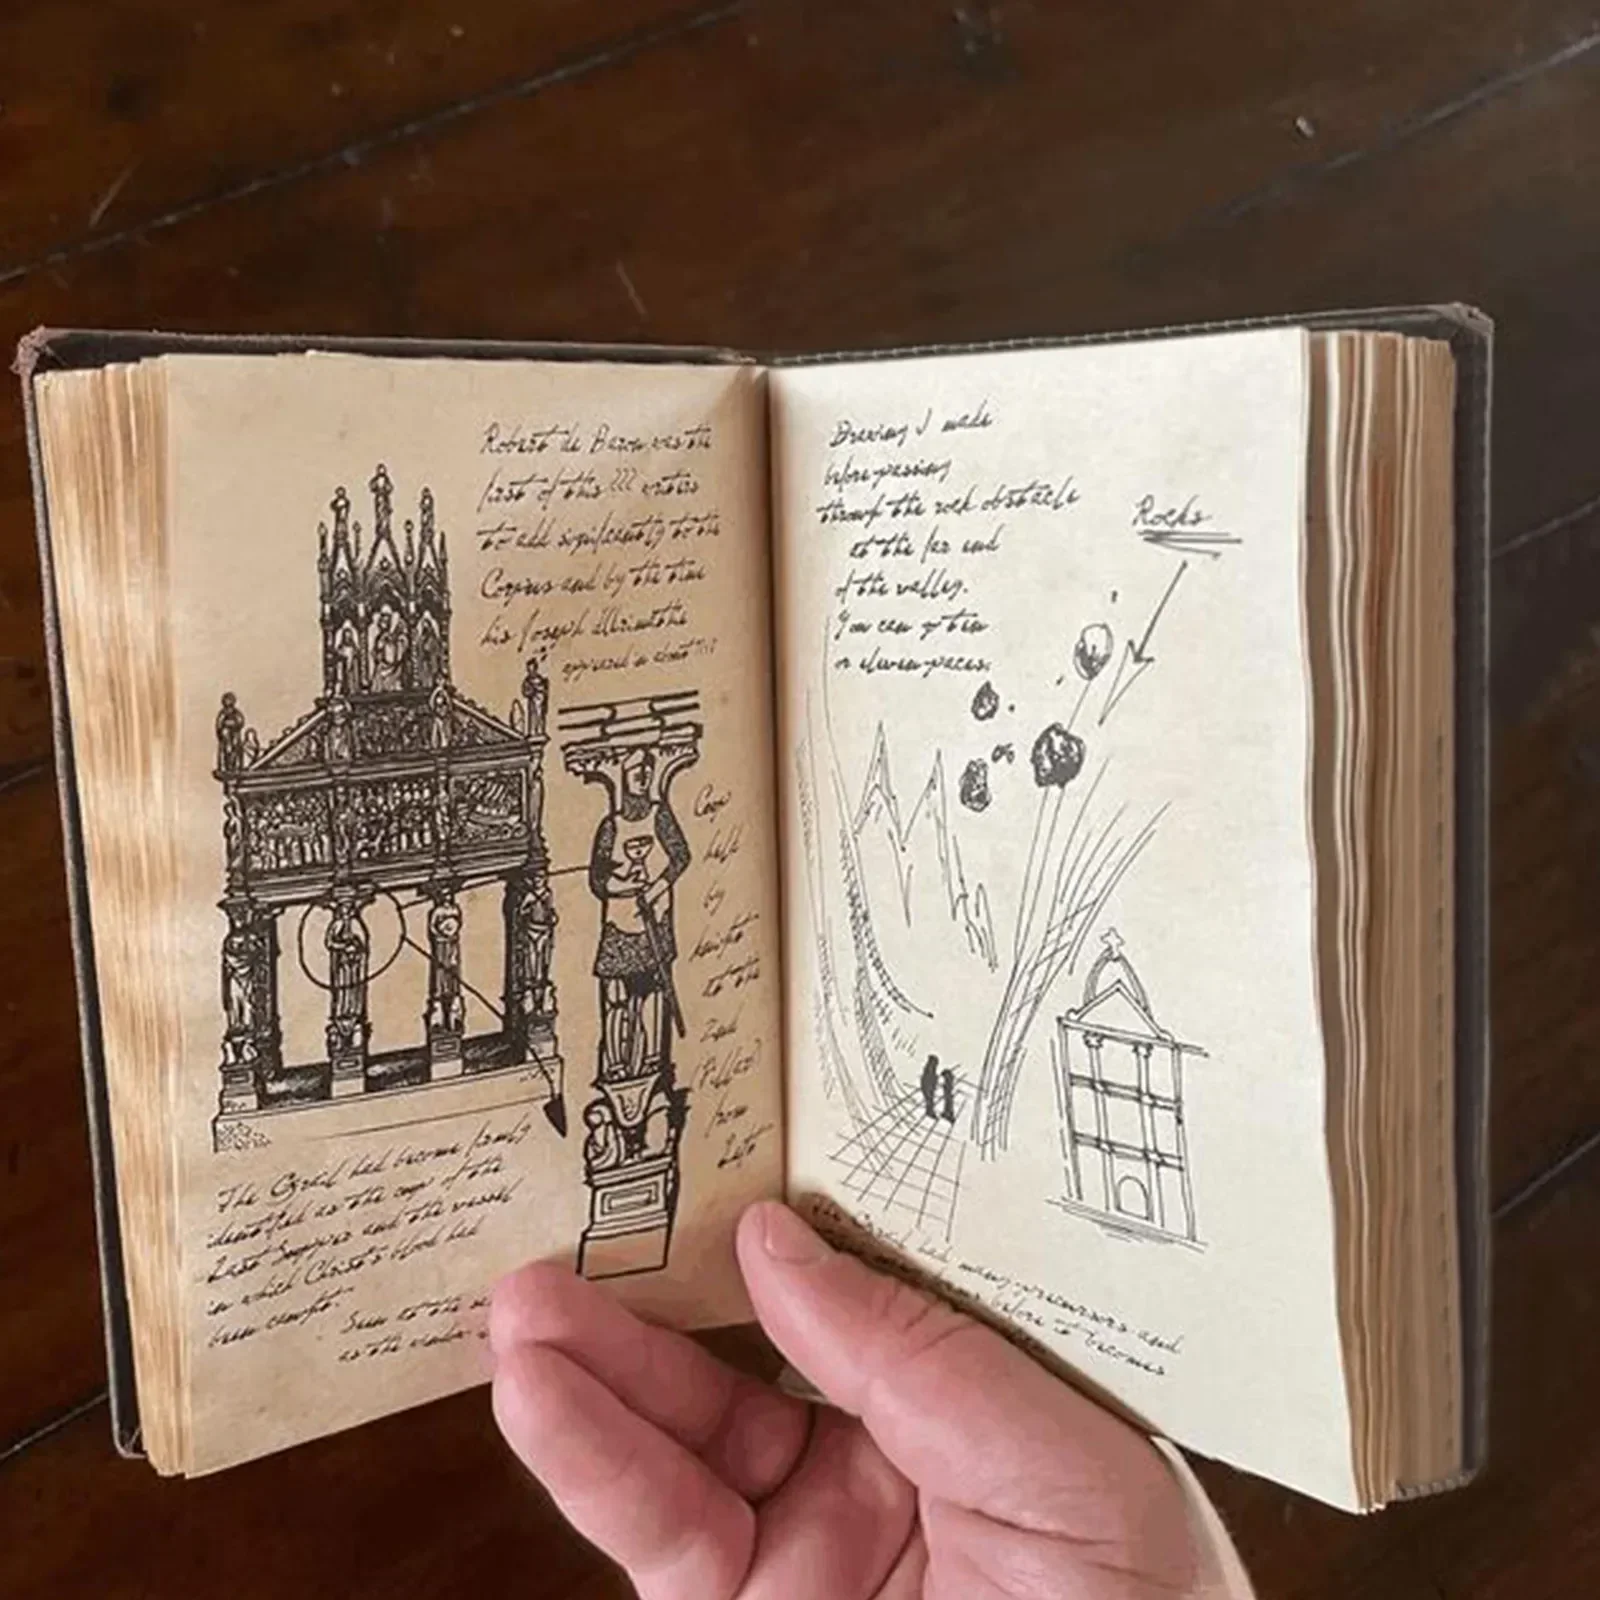 Robert de Boron was the
first of this ??? writers
to add significantly to the
Corpus and by the time
his Joseph d'Arimathe
appeared in about
Cup
held
by
knight
at the
2nd
(Pillar)
from
Left
The Grail had become firmly
identified as the cup of the
Last Supper and the vessel
in which Christ's blood had
been caught.
Seen at the
as the
Drawing I made
before passing
through the rock obstacle
at the far end
of the valley.
You can go ten
or eleven paces.
Rocks
The Grail had many precursors and
before it becomes